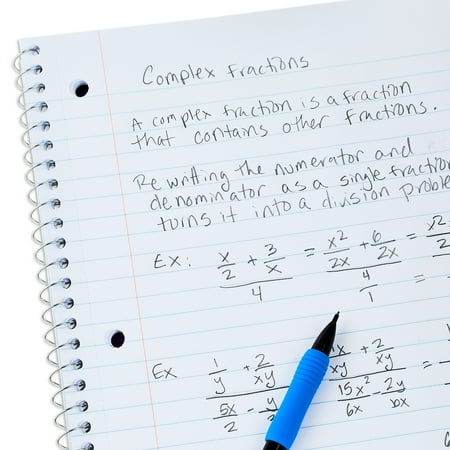 Complex Fractions
A complex fraction is a fraction
that contains other fractions.
Rewriting the numerator and
denominator as a single fraction
turns it into a division
Ex: (x/2 + 3/x)/4 = (x²/2x + 6/2x)/(4/1) =
Ex (1/y + 2/xy)/(5x/2 - y/) + 2/xy)/(15x²/6x - 2y/6x) =